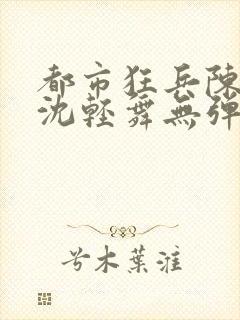 都市狂兵陳
沈輕舞無彈
兮木葉漼